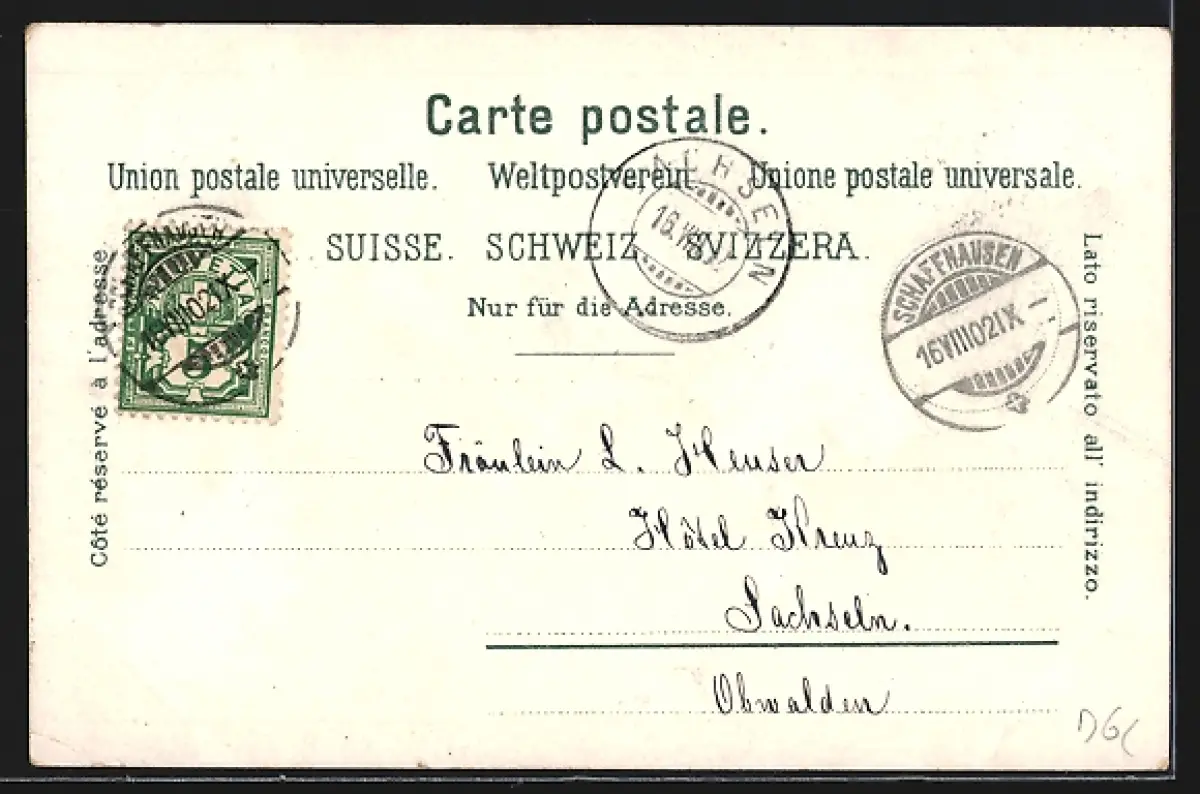 Carte postale.
Union postale universelle. Weltpostverein. Unione postale universale.
SUISSE. SCHWEIZ. SVIZZERA.
Nur für die Adresse.
Côté réservé à l'adresse
Lato riservato all' indirizzo.
SCHAFFHAUSEN
16 VIII 02 IX
SCHAFFHAUSEN
16 VIII 02 IX
Fräulein L. Heuser
Hôtel Kreuz
Sachseln.
Obwalden